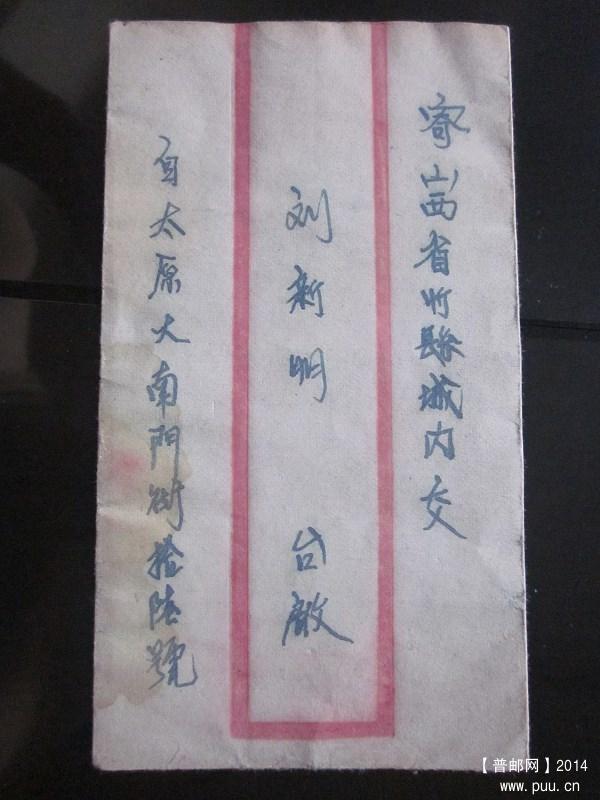 寄山西省忻縣城内交
刘新明 台啟
自太原大南門街拾陸號
【普邮网】2014
www.puu.cn